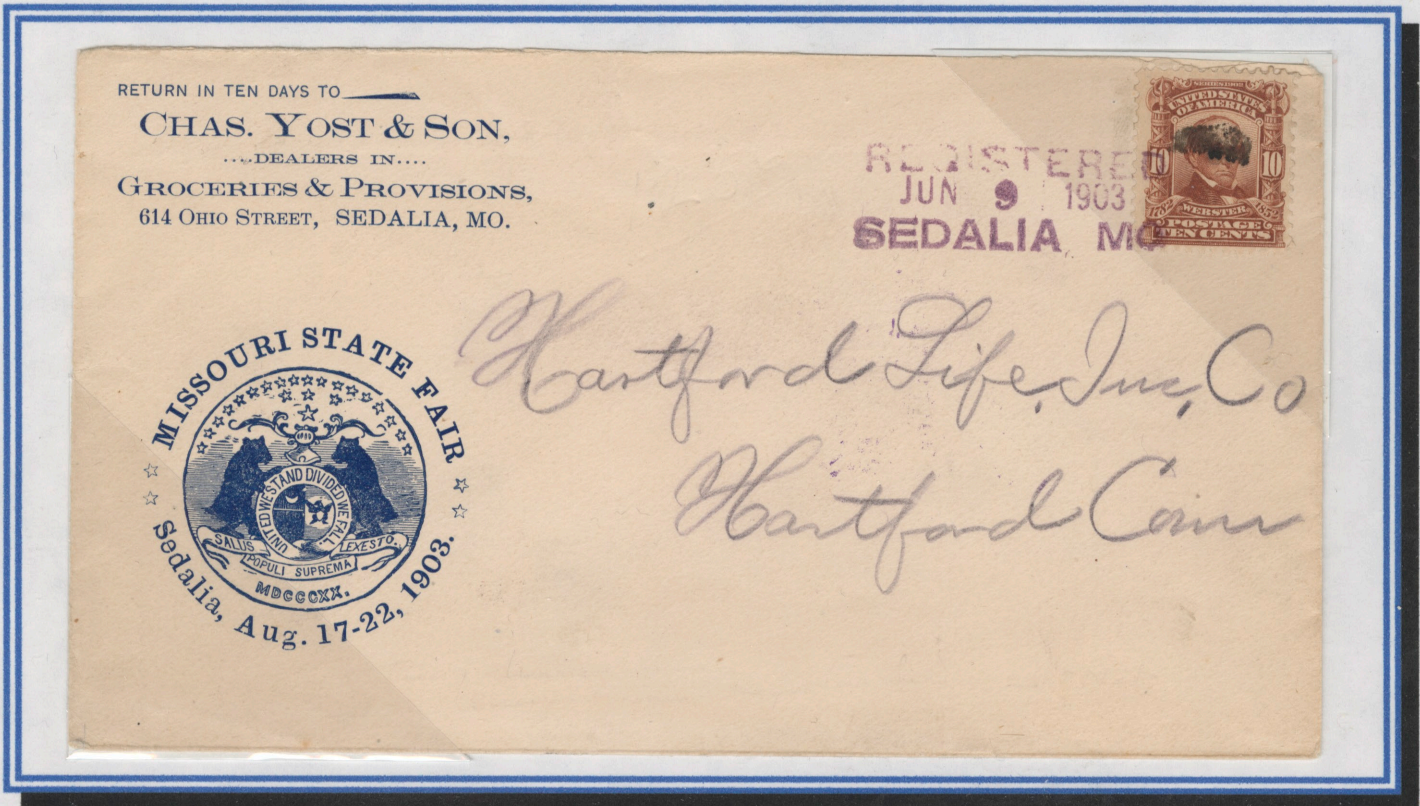 RETURN IN TEN DAYS TO
CHAS. YOST & SON,
....DEALERS IN....
GROCERIES & PROVISIONS,
614 OHIO STREET, SEDALIA, MO.
REGISTERED
JUN 9 1903
SEDALIA, MO
SERIES 1902
UNITED STATES
OF AMERICA
10 10
1782 WEBSTER 1852
POSTAGE
TEN CENTS
Hartford Life, Ins, Co
Hartford Conn
MISSOURI STATE FAIR
UNITED WE STAND DIVIDED WE FALL
SALUS POPULI SUPREMA LEX ESTO.
MDCCCXX.
Sedalia, Aug. 17-22, 1903.